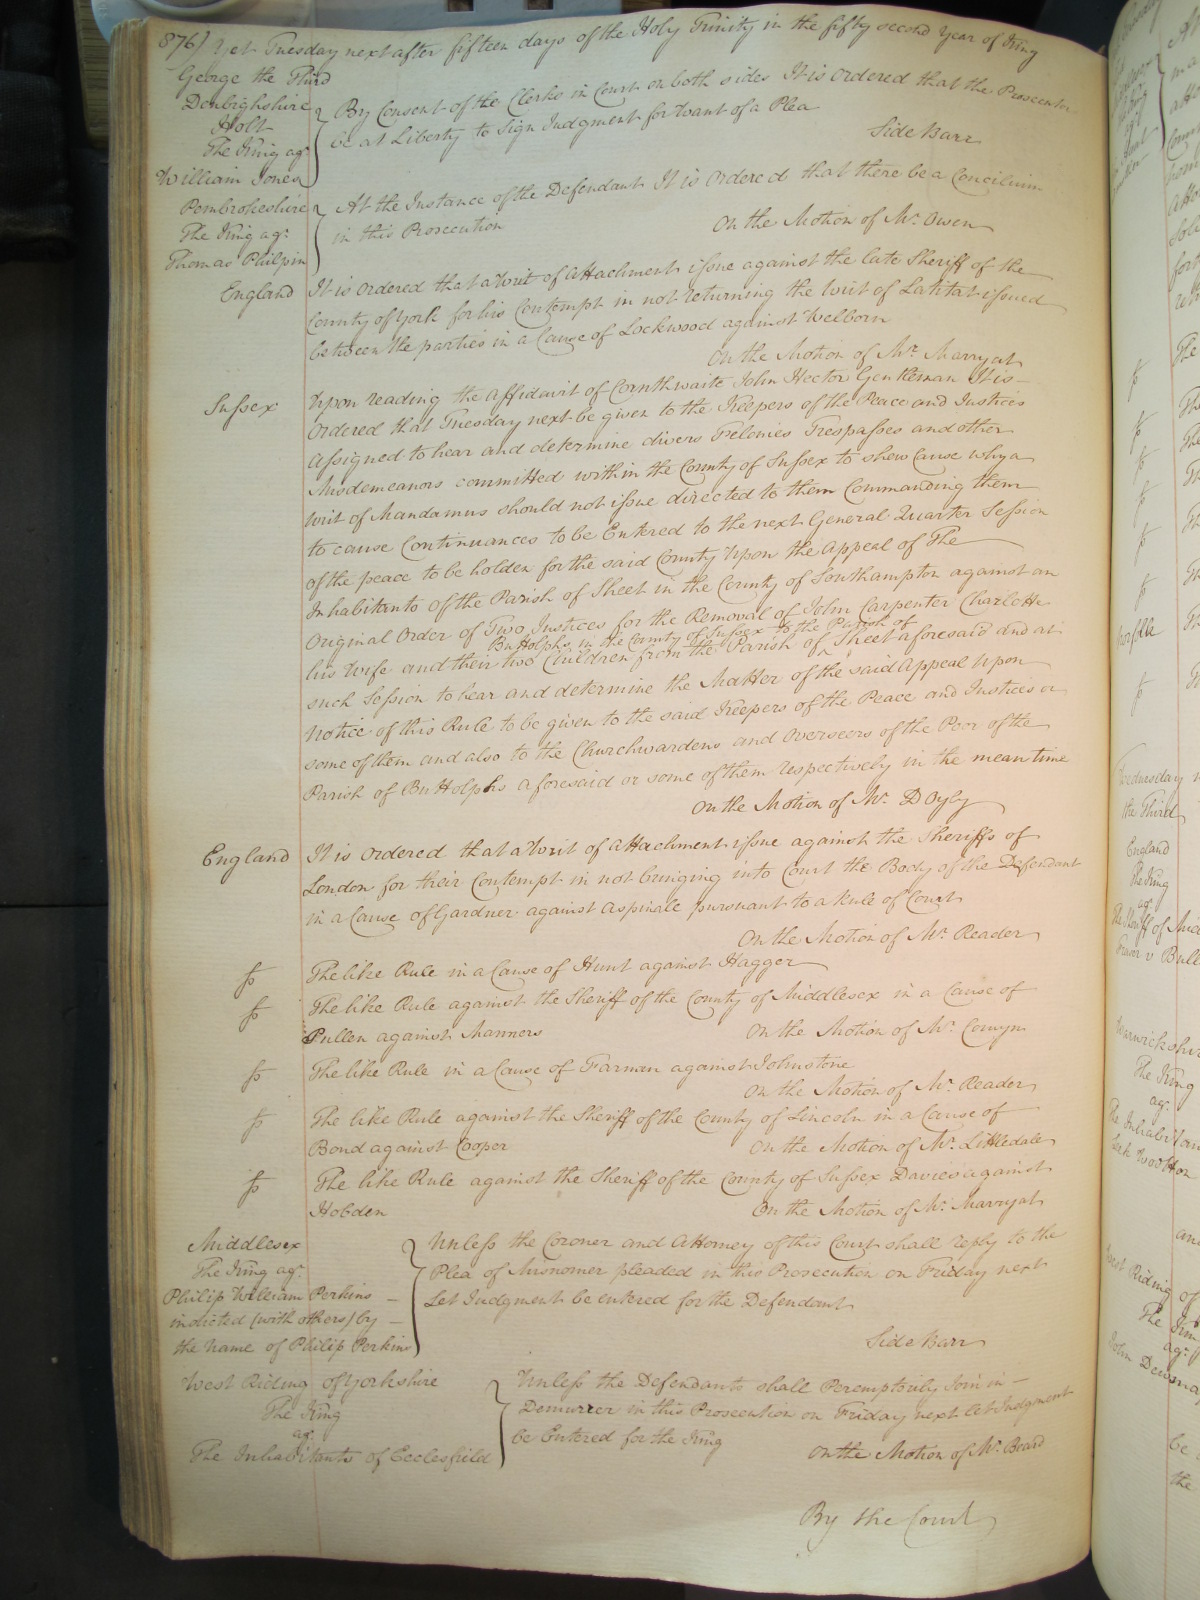 876) Yet Tuesday next after fifteen days of the Holy Trinity in the fifty second Year of King
George the Third
Denbighshire
Holt
The King agt.
William Jones
By Consent of the Clerks in Court on both sides It is Ordered that the Prosecutor
be at Liberty to Sign Judgment for want of a Plea
Side Barr
Pembrokeshire
The King agt.
Thomas Philpin
At the Instance of the Defendant It is Ordered that there be a Concilium
in this Prosecution
On the Motion of Mr. Owen
England
It is Ordered that a Writ of Attachment issue against the late Sheriff of the
County of York for his Contempt in not returning the Writ of Latitat issued
between the parties in a Cause of Lockwood against Welborn
On the Motion of Mr. Marryat
Sussex
Upon reading the Affidavit of Cornthwaite John Hector Gentleman It is
Ordered that Tuesday next be given to the Keepers of the Peace and Justices
Assigned to hear and determine divers Felonies Trespasses and other
Misdemeanors committed within the County of Sussex to shew Cause why a
Writ of Mandamus should not issue directed to them Commanding them
to cause Continuances to be Entered to the next General Quarter Session
of the peace to be holden for the said County Upon the Appeal of The
Inhabitants of the Parish of Sheet in the County of Southampton against an
Original Order of Two Justices for the Removal of John Carpenter Charlotte
Buttolphs in the County of Sussex to the Parish of
his Wife and their two Children from the Parish of Sheet aforesaid and at
such Session to hear and determine the Matter of the said Appeal Upon
Notice of this Rule to be given to the said Keepers of the Peace and Justices or
some of them and also to the Churchwardens and Overseers of the Poor of the
Parish of Buttolphs aforesaid or some of them respectively in the mean time
On the Motion of Mr. D'Oyly
England
It is Ordered that a Writ of Attachment issue against the Sheriffs of
London for their Contempt in not bringing into Court the Body of the Defendant
in a Cause of Gardner against Aspinale pursuant to a Rule of Court
On the Motion of Mr. Reader
The like Rule in a Cause of Hunt against Hagger
The like Rule against the Sheriff of the County of Middlesex in a Cause of
Pullen against Manners
On the Motion of Mr. Comyn
The like Rule in a Cause of Farman against Johnstone
On the Motion of Mr. Reader
The like Rule against the Sheriff of the County of Lincoln in a Cause of
Bond against Cooper
On the Motion of Mr. Littledale
The like Rule against the Sheriff of the County of Sussex Davies against
Hobden
On the Motion of Mr. Marryat
Middlesex
The King agt.
Philip William Perkins
indicted (with others) by
the Name of Philip Perkins
Unless the Coroner and Attorney of this Court shall reply to the
Plea of Misnomer pleaded in this Prosecution on Friday next
Let Judgment be entered for the Defendant
Side Barr
West Riding of Yorkshire
The King
agt.
The Inhabitants of Ecclesfield
Unless the Defendants shall Peremptorily Join in
Demurrer in this Prosecution on Friday next let Judgment
be Entered for the King
On the Motion of Mr. Beard
By the Court